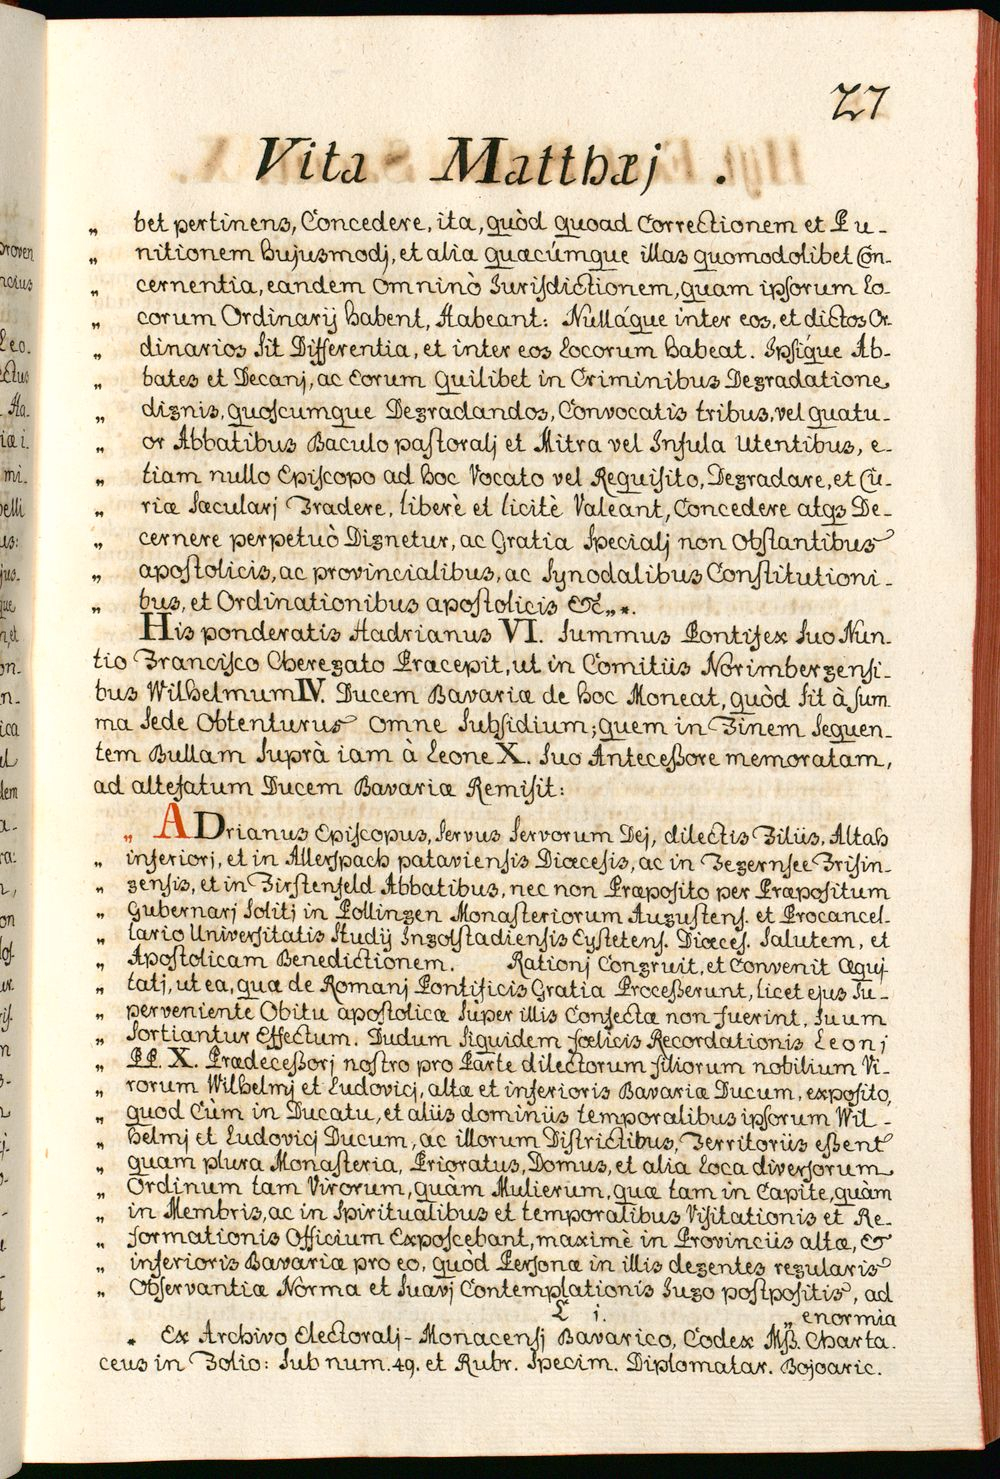 27
Vita Matthæj .
„ bet pertinens, Concedere, ita, quòd quoad Correctionem et Pu-
„ nitionem hujusmodj, et alia quæcúmque illas quomodolibet Con-
„ cernentia, eandem omninò Iurisdictionem, quam ipsorum Lo-
„ corum Ordinarij habent, Habeant: Nulláque inter eos, et dictos Or-
„ dinarios sit Differentia, et inter eos Locorum habeat. Ipsíque Ab-
„ bates et Decanj, ac Eorum quilibet in Criminibus Degradatione
„ dignis, quoscumque Degradandos, Convocatis tribus, vel quatu-
„ or Abbatibus Baculo pastoralj et Mitra vel Insula Utentibus, e-
„ tiam nullo Episcopo ad hoc Vocato vel Requisito, Degradare, et Cu-
„ riæ Sæcularj Tradere, liberè et licitè Valeant, Concedere atqz De-
„ cernere perpetuò Dignetur, ac Gratia Specialj non Obstantibus
„ apostolicis, ac provincialibus, ac Synodalibus Constitutioni-
„ bus, et Ordinationibus apostolicis &c„*.
His ponderatis Hadrianus VI. Summus Pontifex Suo Nun-
tio Francisco Cheregato Præcepit, ut in Comitiis Norimbergensi-
bus Wilhelmum IV. Ducem Bavariæ de hoc Moneat, quòd sit à sum
ma Sede Obtenturus omne Subsidium; quem in Finem Sequen-
tem Bullam Suprà iam à Leone X. Suo Antecessore memoratam,
ad altefatum Ducem Bavariæ Remisit:
„ ADrianus Episcopus, Servus Servorum Dej, dilectis Filiis, Altah
„ inferiorj, et in Allerspach pataviensis Diœcesis, ac in Tegernsee Frisin-
„ gensis, et in Firstenfeld Abbatibus, nec non Præposito per Præpositum
„ Gubernarj Solitj in Pollingen Monasteriorum Augustens. et Procancel-
„ lario Universitatis Studij Ingolstadiensis Eystetens. Diœces. Salutem, et
„ Apostolicam Benedictionem. Rationj Congruit, et Convenit Æquj
„ tatj, ut ea, quæ de Romanj Pontificis Gratia Processerunt, licet ejus Su-
„ perveniente Obitu apostolicæ Super illis Confectæ non fuerint, Suum
„ Sortiantur Effectum. Dudum Siquidem fœlicis Recordationis Leonj
„ PP. X. Prædecessorj nostro pro Parte dilectorum filiorum nobilium Vi-
„ rorum Wilhelmj et Ludovicj, altæ et inferioris Bavariæ Ducum, exposito,
„ quod Cùm in Ducatu, et aliis dominiis temporalibus ipsorum Wil-
„ helmj et Ludovicj Ducum, ac illorum Districtibus, Territoriis essent
„ quam plura Monasteria, Prioratus, Domus, et alia Loca diversorum
„ Ordinum tam Virorum, quàm Mulierum, quæ tam in Capite, quàm
„ in Membris, ac in Spiritualibus et temporalibus Visitationis et Re-
„ formationis Officium Exposcebant, maximè in Provinciis altæ, &
„ inferioris Bavariæ pro eo, quòd Personæ in illis degentes regularis
„ Observantiæ Norma et Suavj Contemplationis Iugo postpositis, ad
„ enormia
* Ex Archivo Electoralj-Monacensj Bavarico, Codex Mß. Charta.
ceus in Folio: Sub num. 49. et Rubr. Specim. Diplomatar. Bojoaric.